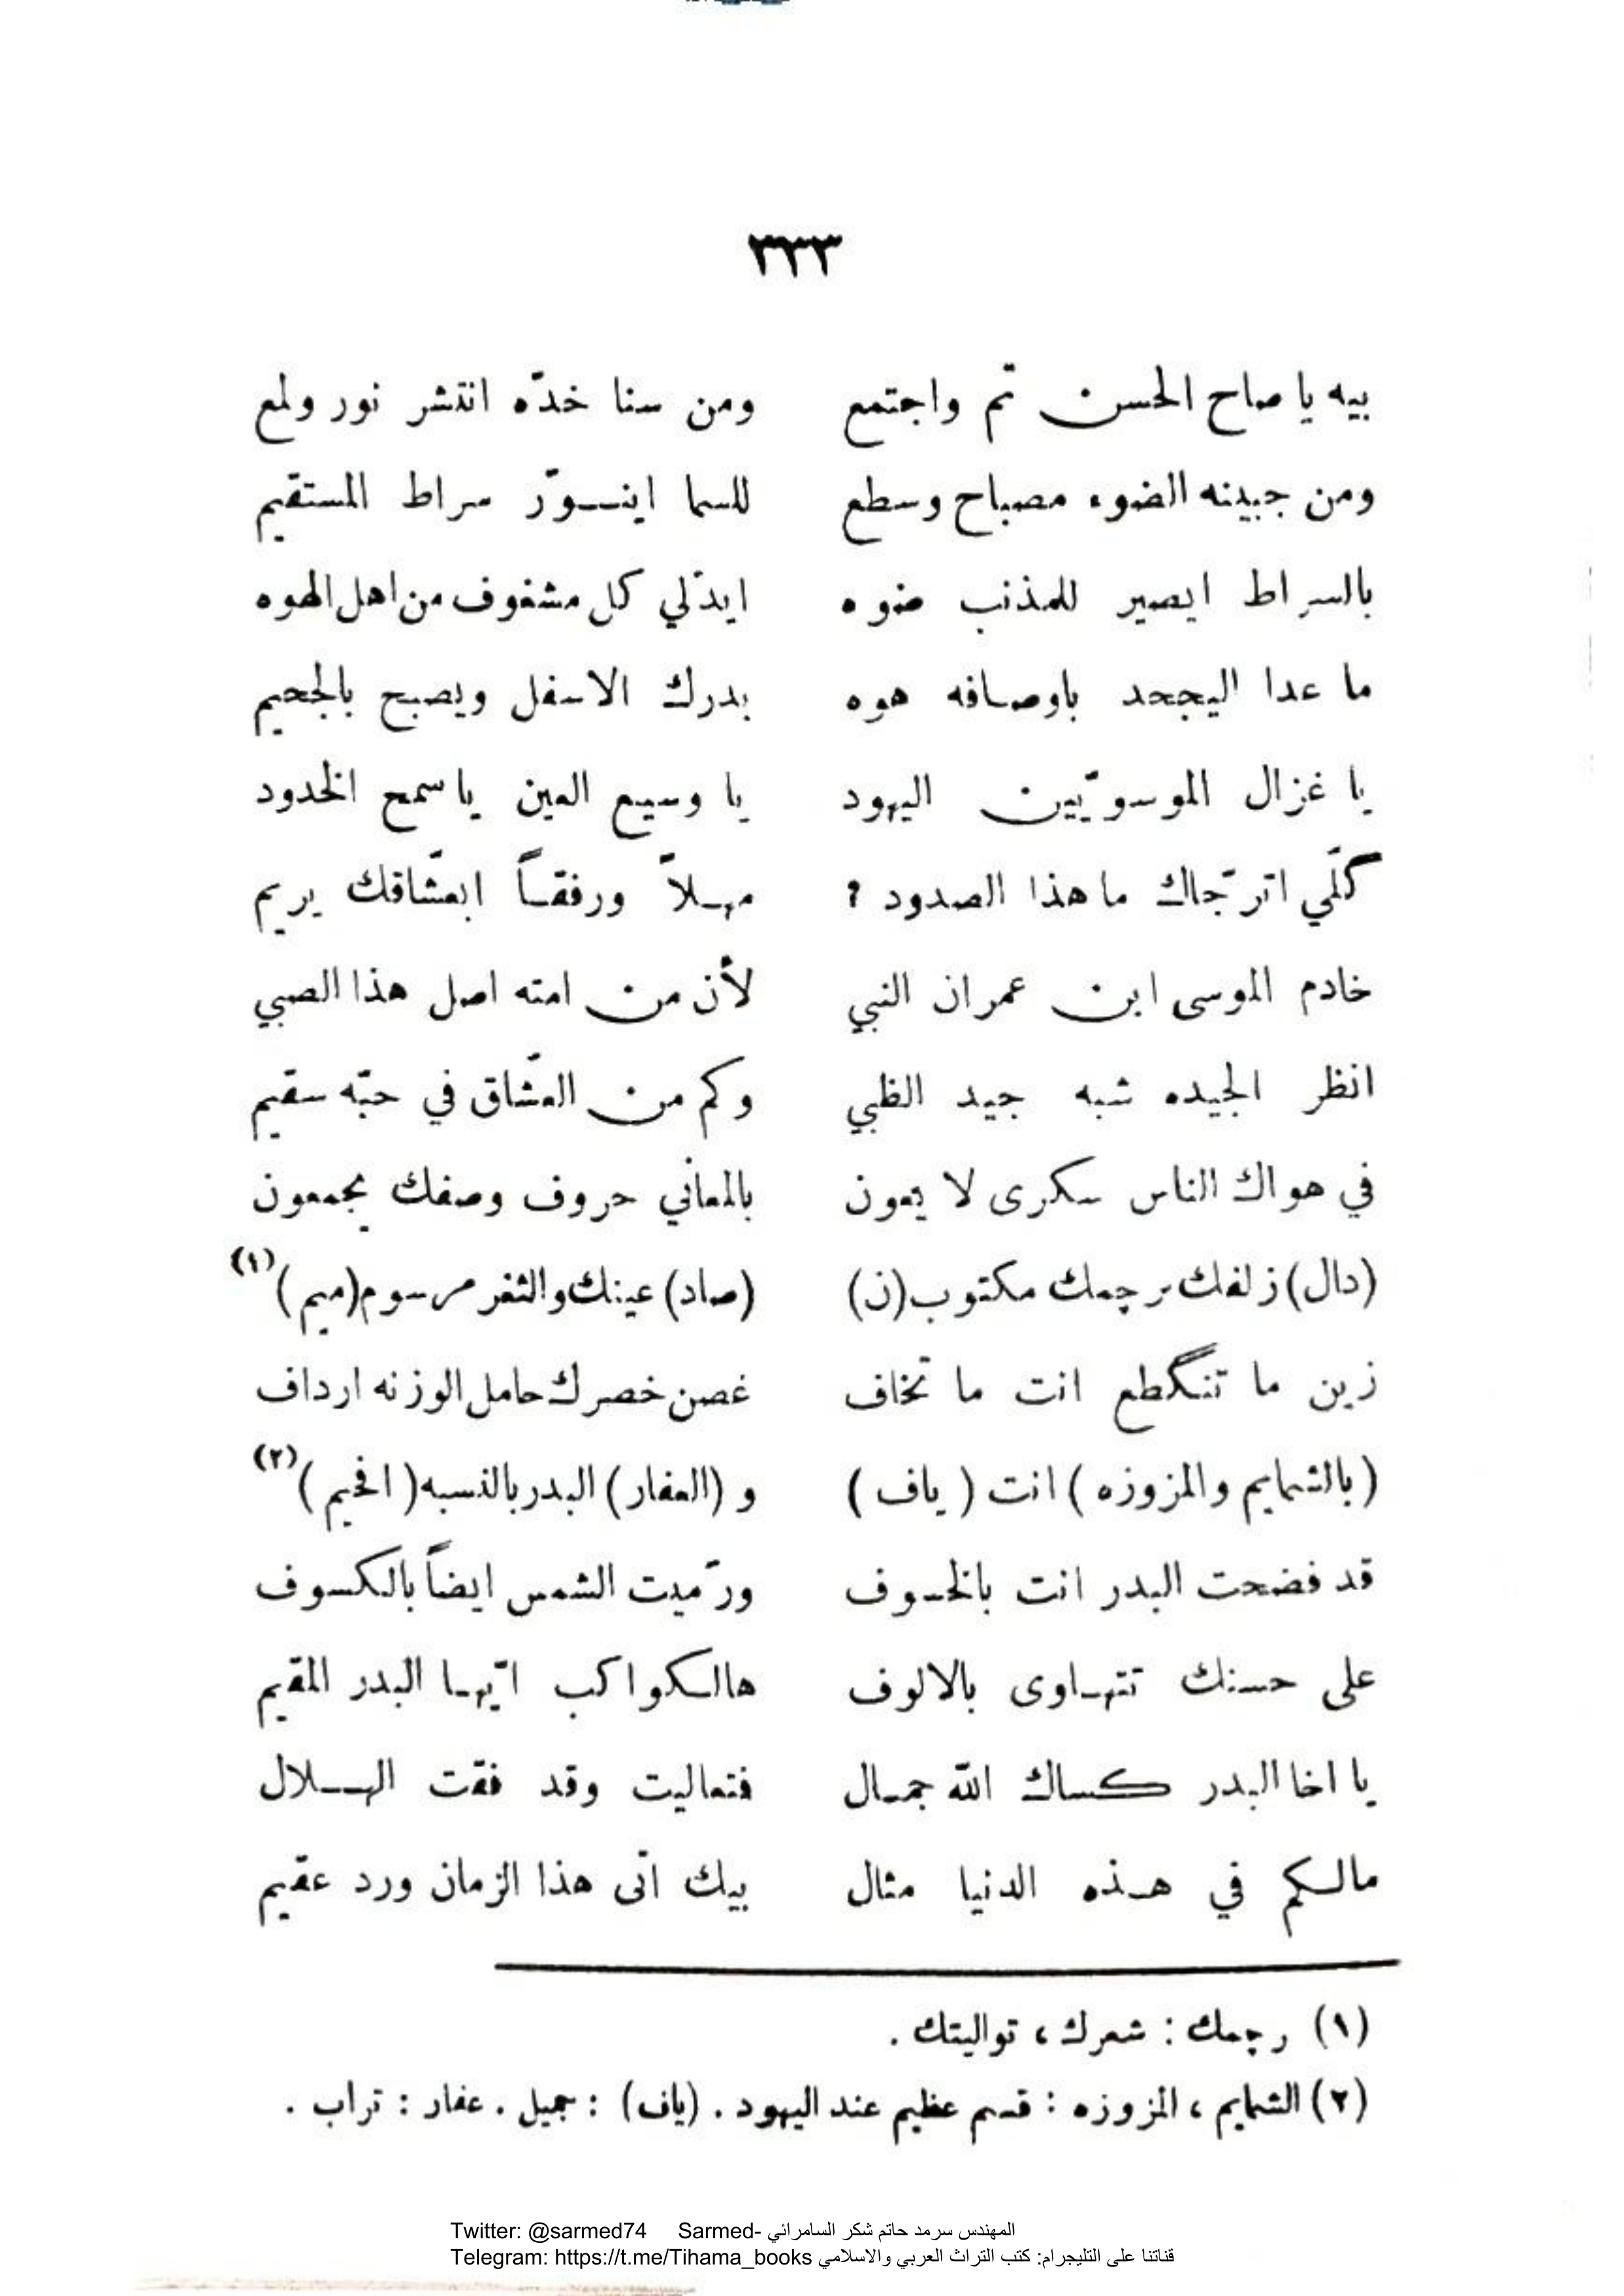 ٣٣٣
بيه يا صاح الحسن تم واجتمع ومن سنا خدّه انتشر نور ولمع
ومن جبينه الضوء مصباح وسطع للسما اينوّر سراط المستقيم
بالسراط ايصير للمذنب ضوه ايدّلي كل مشغوف من اهل الهوه
ما عدا اليجحد باوصافه هوه بدرك الاسفل ويصبح بالجحيم
يا غزال الموسويّين اليهود يا وسيع العين يا سمح الخدود
گلّي اترجّاك ما هذا الصدود ؟ مهلاً ورفقاً ابعشّاقك يريم
خادم الموسى ابن عمران النبي لأن من امته اصل هذا الصبي
انظر الجيده شبه جيد الظبي وكم من العشّاق في حبّه سقيم
في هواك الناس سكرى لا يعون بالمعاني حروف وصفك يجمعون
(دال) زلفك برچمك مكتوب (ن) (صاد) عينك والثغر مرسوم (ميم) (١)
زين ما تنگطع انت ما تخاف غصن خصرك حامل الوزنه ارداف
(بالشمايم والمزوزه) انت (ياف) و (العفار) البدر بالنسبه (افحيم) (٢)
قد فضحت البدر انت بالخسوف ورّميت الشمس ايضاً بالكسوف
على حسنك تتهاوى بالالوف هالكواكب ايّها البدر المقيم
يا اخا البدر كساك الله جمال فتعاليت وقد فقت الهلال
مالكم في هذه الدنيا مثال بيك اتى هذا الزمان ورد عقيم
(١) رچمك : شعرك ، تواليتك .
(٢) الشمايم ، المزوزه : قسم عظيم عند اليهود . (ياف) : جميل . عفار : تراب .
Twitter: @sarmed74 Sarmed- المهندس سرمد حاتم شكر السامرائي
Telegram: https://t.me/Tihama_books قناتنا على التليجرام: كتب التراث العربي والاسلامي